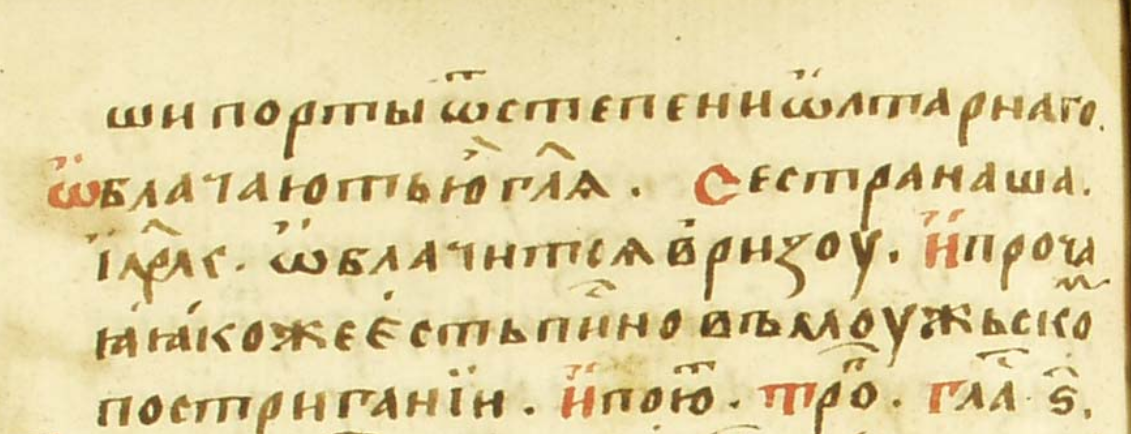 ши порты ѿстепени ѡ҆лтарнаго.
Ѡ҆блачаютью҆ гл҃ѧ. Сестранаша.
їмр҃кс. ѡ҆блачитсѧ в҆ризоу. И҆проча
ꙗ҆ꙗ҆коже е҆стьпи҃но въмоужьско
постриганїи. И҆пою҃. тро҃. гла҃ ѕ҃.